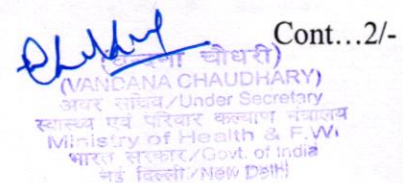 Cont…2/-
चौधरी)
(VANDANA CHAUDHARY)
अवर सचिव/Under Secretary
स्वास्थ्य एवं परिवार कल्याण मंत्रालय
Ministry of Health & F.W.
भारत सरकार/Govt. of India
नई दिल्ली/New Delhi